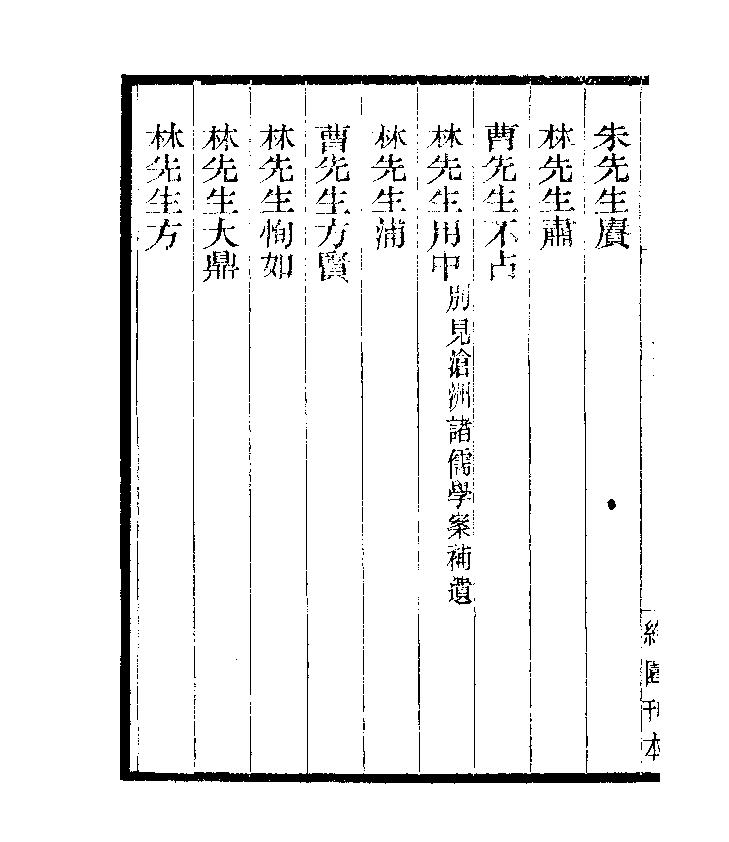 朱先生賡
林先生肅
曹先生不占
林先生用中別見滄洲諸儒學案補遺
林先生蒲
曹先生方賢
林先生恂如
林先生大鼎
林先生方
約園刊本